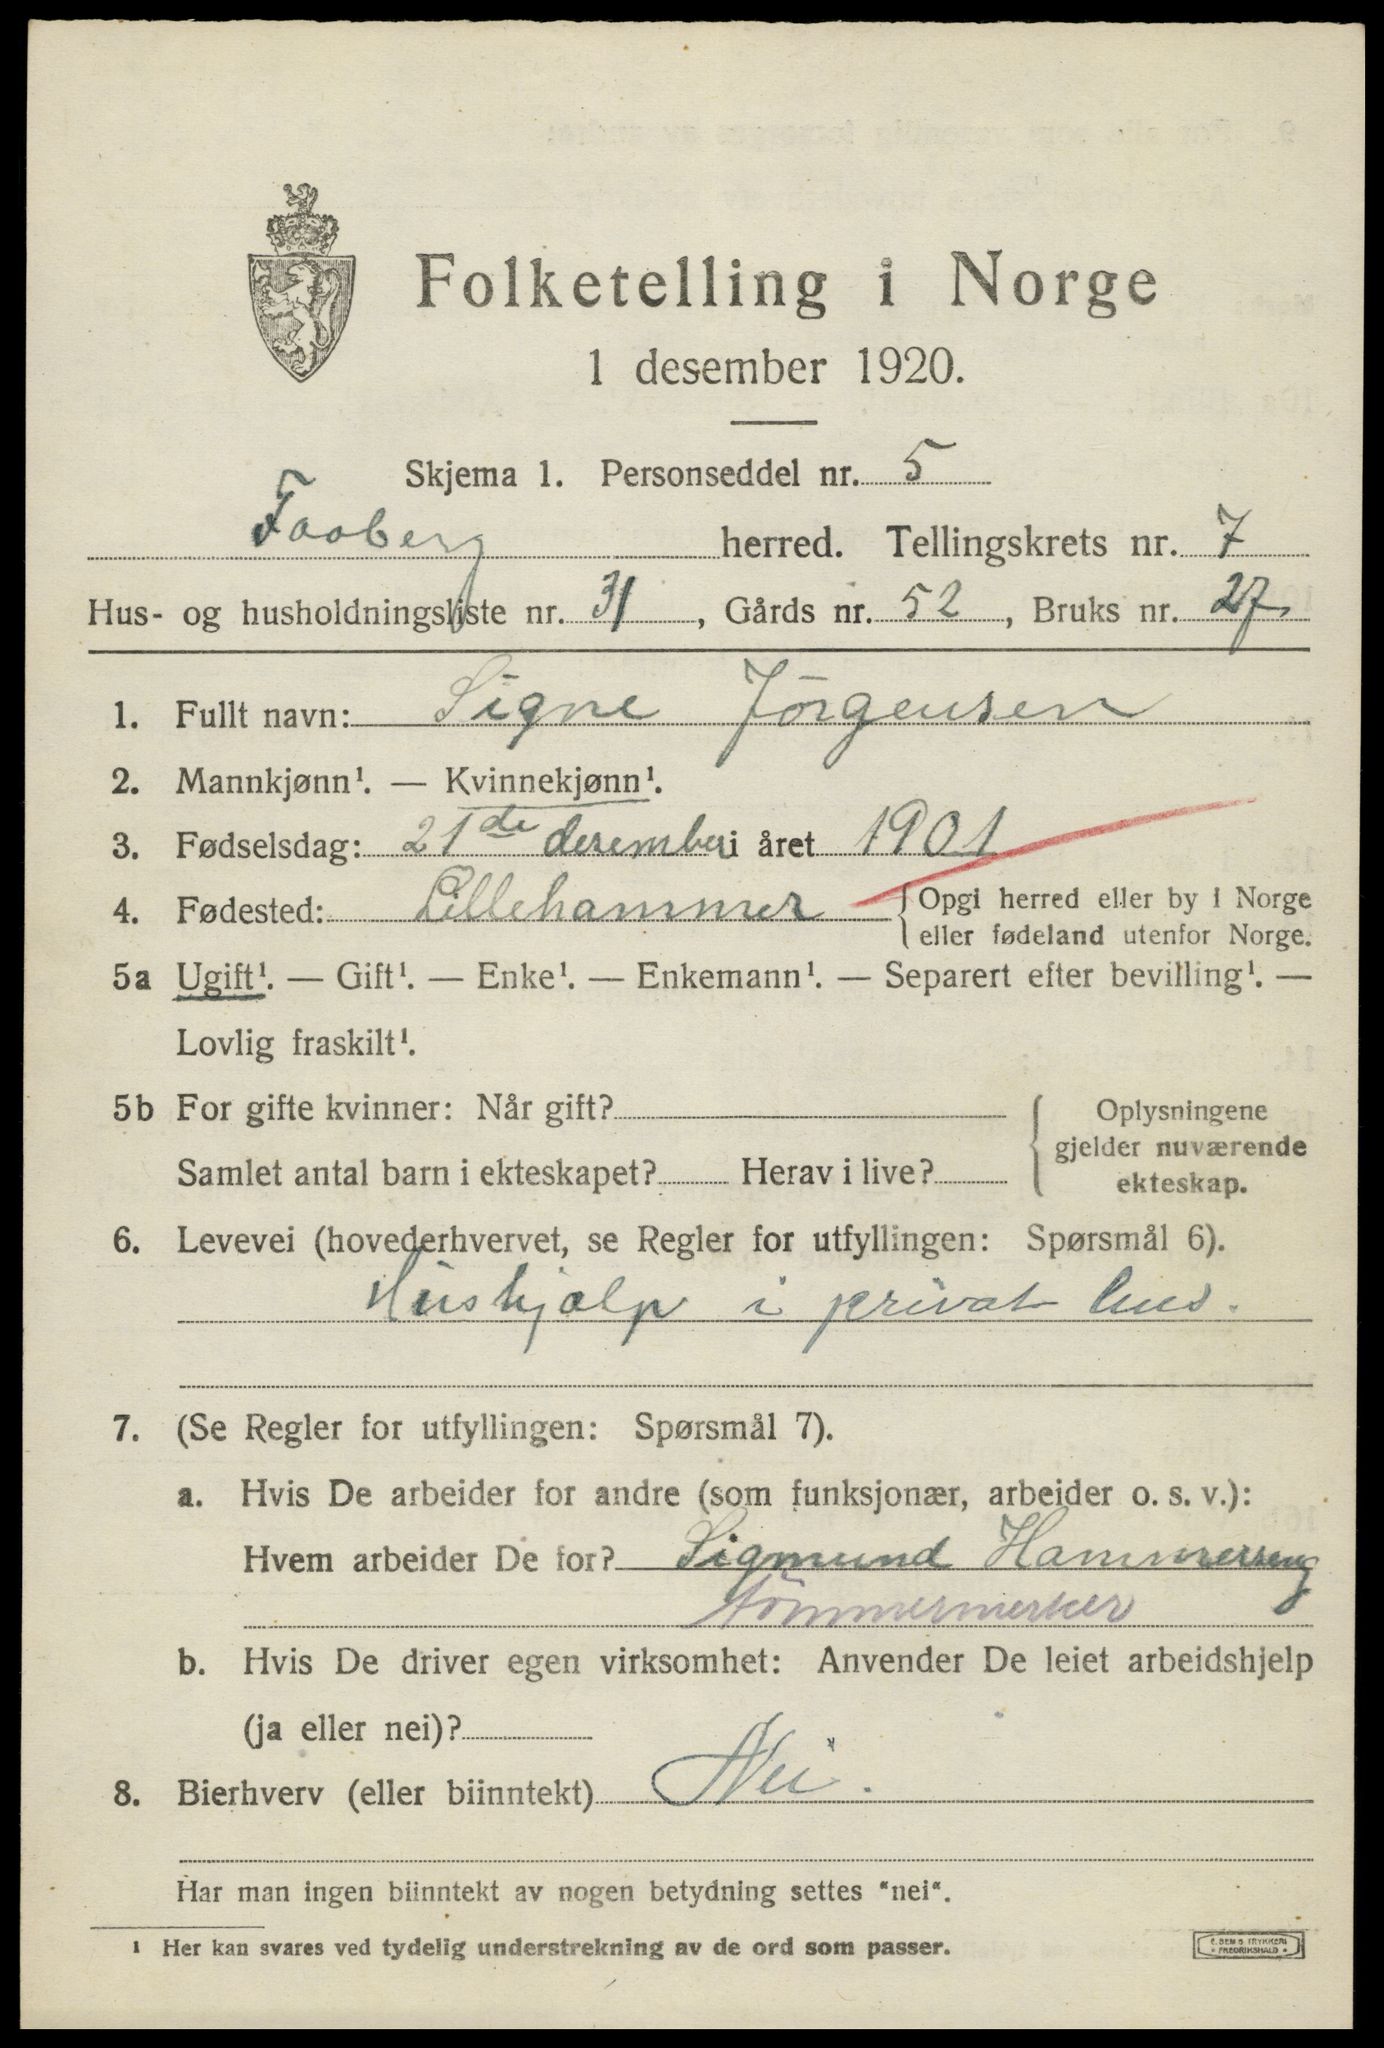 Folketelling i Norge
1 desember 1920.
Skjema 1. Personseddel nr. 5
Faaberg herred. Tellingskrets nr. 7
Hus- og husholdningsliste nr. 31, Gårds nr. 52, Bruks nr. 27
1. Fullt navn: Signe Jörgensen
2. Mannkjønn¹. — Kvinnekjønn¹.
3. Fødselsdag: 21de desember i året 1901
4. Fødested: Lillehammer {Opgi herred eller by i Norge
eller fødeland utenfor Norge.
5a Ugift¹. — Gift¹. — Enke¹. — Enkemann¹. — Separert efter bevilling¹. —
Lovlig fraskilt¹.
5b For gifte kvinner: Når gift?
Oplysningene
gjelder nuværende
ekteskap.
Samlet antal barn i ekteskapet? Herav i live?
6. Levevei (hovederhvervet, se Regler for utfyllingen: Spørsmål 6).
Hushjælp i privat hus.
7. (Se Regler for utfyllingen: Spørsmål 7).
a. Hvis De arbeider for andre (som funksjonær, arbeider o. s. v.):
Hvem arbeider De for? Sigmund Hammerseng
tömmermerker
b. Hvis De driver egen virksomhet: Anvender De leiet arbeidshjelp
(ja eller nei)?
8. Bierhverv (eller biinntekt) Nei.
Har man ingen biinntekt av nogen betydning settes "nei".
¹ Her kan svares ved tydelig understrekning av de ord som passer.
E. SEM'S TRYKKERI
* FREDRIKSHALD *